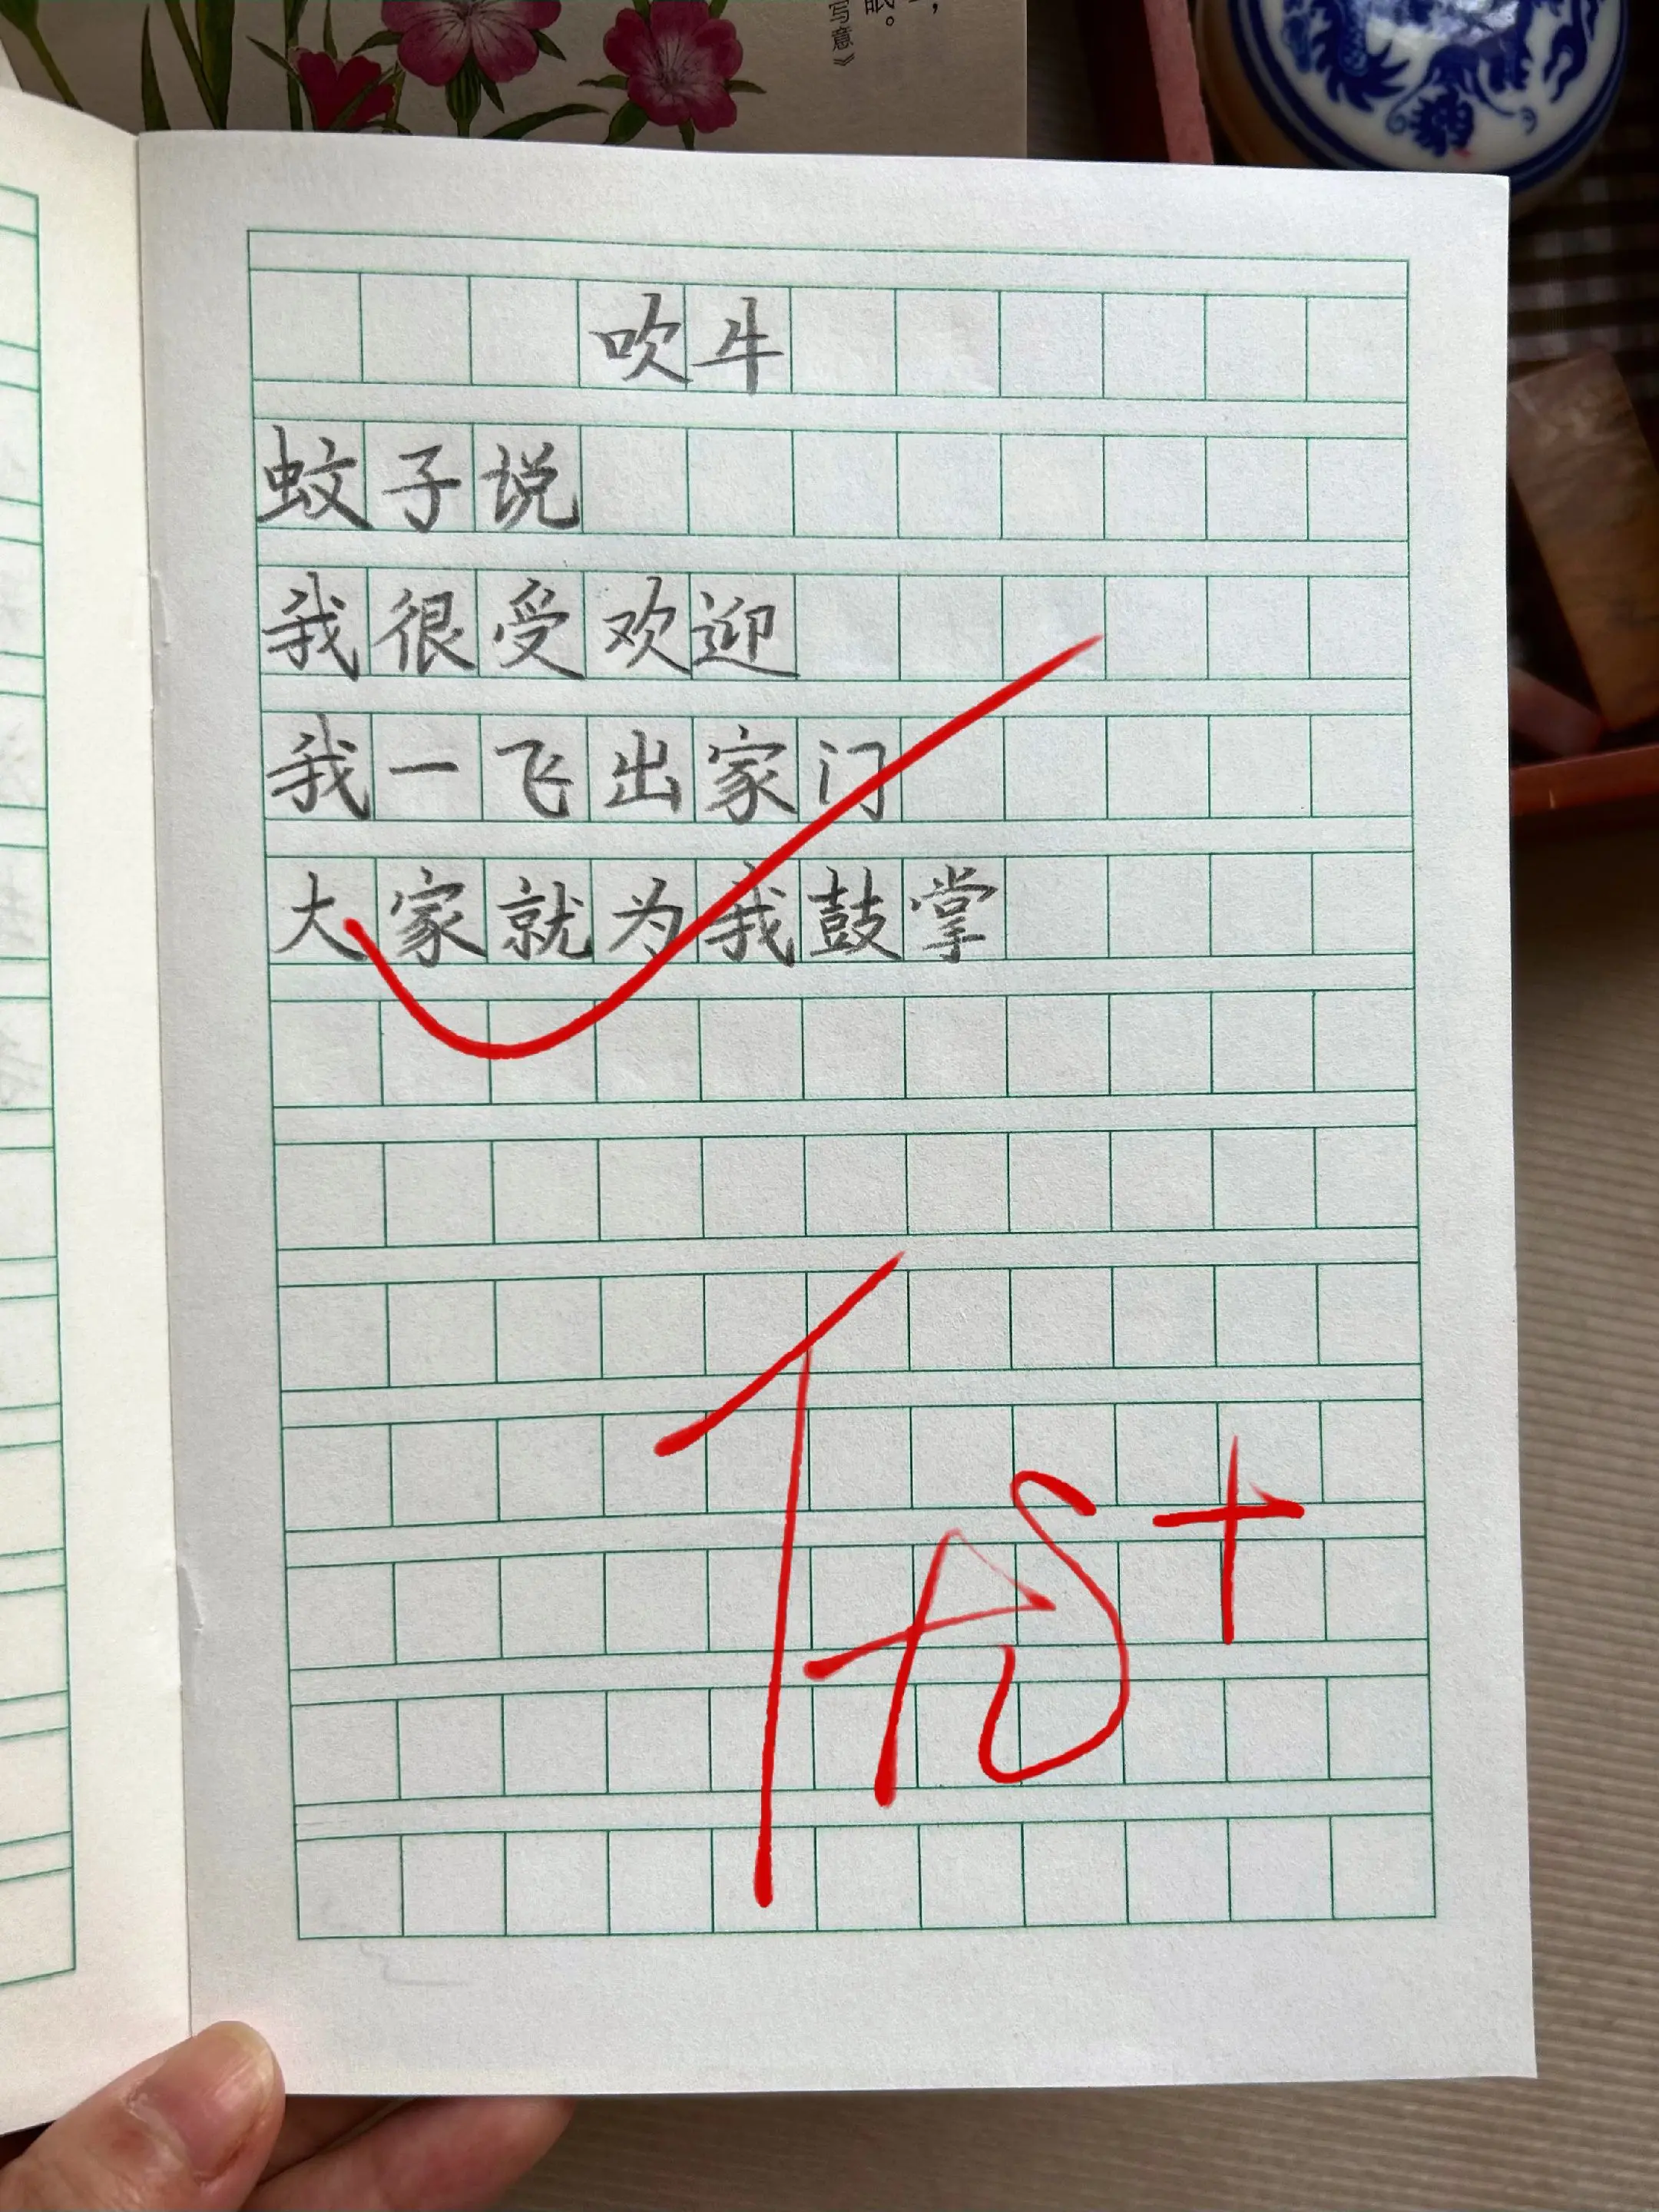 写意》
眠。
吹牛
蚊子说
我很受欢迎
我一飞出家门
大家就为我鼓掌
优+